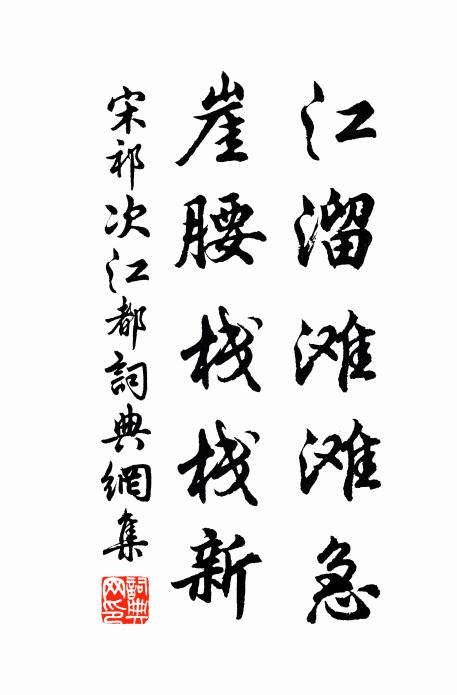 江溜滩滩急
崖腰栈栈新
宋祁次江都詞典網集
詞典網印